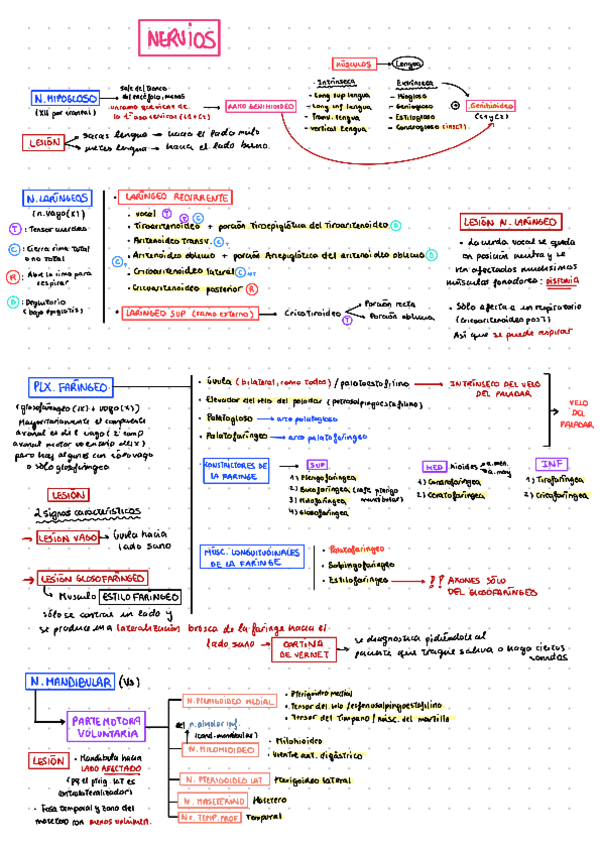 NERVIOS
MÚSCULOS → Lengua
N. HIPOGLOSO
(XII par craneal)
sale del tronco
del encéfalo, menos
RAMO GENIHIOIDEO
Intrínseca
- Long sup lengua
- Long inf lengua
- Transv. lengua
- vertical lengua
Extrínseca
- Hiogloso
- Geniogloso
- Estilogloso
Genihioideo
(C1 y C2)
LESIÓN
sacas lengua → hacia el lado malo
metes lengua → hacia el lado bueno.
N. LARÍNGEOS
(n. vago (X))
T : Tensor cuerdas
C : Cierra rima total
o no total
R : Abre la rima para
respirar
D : Deglutorio
(baja epiglotis)
• LARÍNGEO RECURRENTE
• vocal T T C
• Tiroaritenoideo + porción Tiroepiglótica del Tiroaritenoideo D
• Aritenoideo transv. C
• Aritenoideo oblicuo + porción Ariepiglótica del aritenoideo oblicuo D
• Cricoaritenoideo lateral C
• Cricoaritenoideo posterior R
• LARINGEO SUP (ramo externo) → Cricotiroideo T
Porción recta
Porción oblicua
LESIÓN N. LARÍNGEO
• La cuerda vocal se queda
en posición neutra y se
ven afectados muchísimos
músculos fonadores: DISFONIA
• Sólo afecta a un respiratorio
(cricoaritenoideo post)
Así que se puede respirar
PLX. FARÍNGEO
(glosofaríngeo (IX) + vago (X))
Mayoritariamente el componente
axonal es del vago
pero hay algunos con sólo vago
o sólo glosofaríngeo
• Úvula (bilateral, como todos) / palatoestafilino → INTRÍNSECO DEL VELO
DEL PALADAR
• Elevador del velo del paladar (petrosalpingoestafilino)
• Palatogloso → arco palatogloso
• Palatofaríngeo → arco palatofaríngeo
VELO
DEL
PALADAR
CONSTRICTORES DE
LA FARINGE
SUP
1) Pterigofaríngea
2) Bucofaríngea
3) Milofaríngea
4) Glosofaríngea
MED
1) Condrofaríngea
2) Ceratofaríngea
INF
1) Tirofaríngea
2) Cricofaríngea
LESIÓN
2 signos característicos
→ LESIÓN VAGO → Úvula hacia
lado sano
→ LESIÓN GLOSOFARÍNGEO
Musculo ESTILOFARÍNGEO
MÚSC. LONGITUDINALES
DE LA FARINGE
• Palatofaríngeo
• Salpingofaríngeo
• Estilofaríngeo → !! AXONES SÓLO
DEL GLOSOFARÍNGEO
sólo se contrae un lado y
se produce una lateralización brusca de la faringe hacia el
lado sano → CORTINA
DE VERNET
se diagnostica pidiéndole al
paciente que trague saliva o haga ciertos
sonidos
N. MANDIBULAR (V3)
PARTE MOTORA
VOLUNTARIA
N. PTERIGOIDEO MEDIAL
• Pterigoideo medial
• Tensor del velo / esfenosalpingoestafilino
• Tensor del Tímpano / músc. del martillo
n. alveolar inf.
N. MILOHIOIDEO
• Milohioideo
• Vientre ant. digástrico
N. PTERIGOIDEO LAT
Pterigoideo lateral
N. MASETERINO
Masetero
Ns. TEMP. PROF
Temporal
LESIÓN
• Mandíbula hacia
LADO AFECTADO
(pq el pterig. LAT es
contralateralizador)
• Fosa temporal y zona del
masetero con menos volumen.